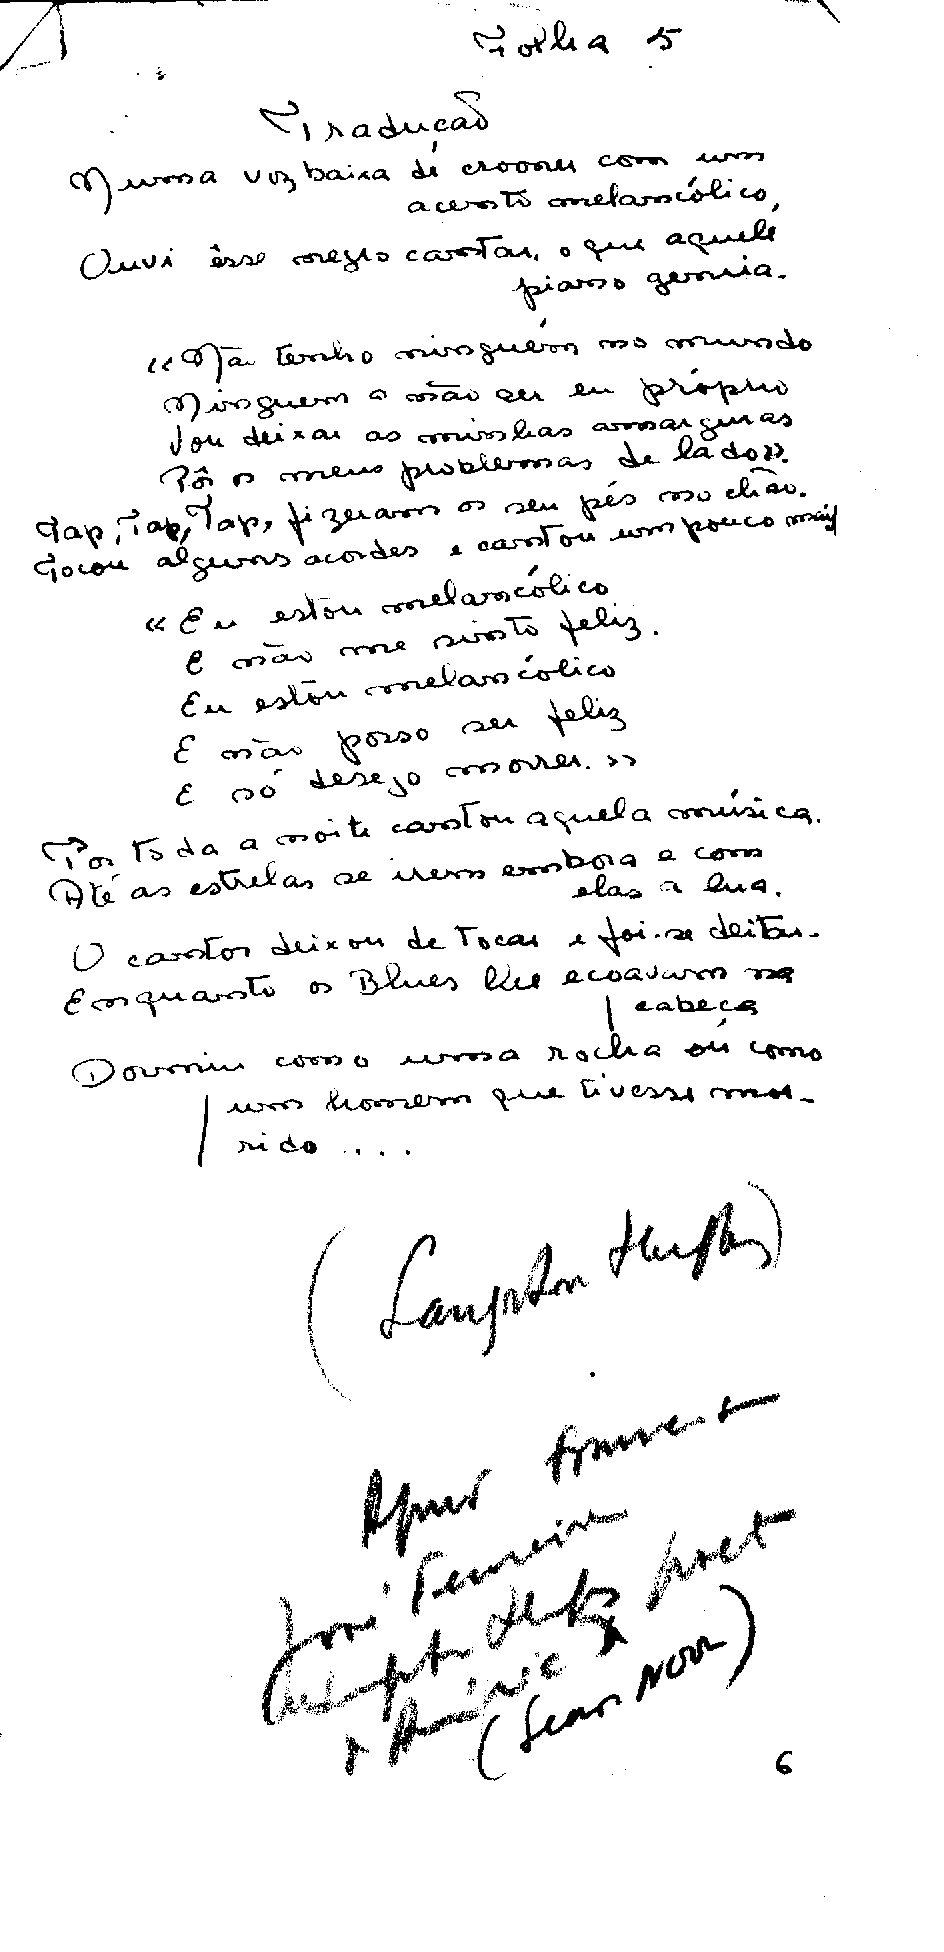 Folha 5
Tradução
Numa voz baixa de crooner com um
acento melancólico,
Ouvi êsse negro cantar, o que aquele
piano gemia.
«Não tenho ninguém no mundo
Ninguem a não ser eu próprio
Vou deixar as minhas amarguras
Pôr os meus problemas de lado».
Tap, Tap, Tap, fizeram os seu pés no chão.
Tocou alguns acordes e cantou um pouco mais
«Eu estou melancólico
E não me sinto feliz.
Eu estou melancólico
E não posso ser feliz
E só desejo morrer.»
Por toda a noite cantou aquela música.
Até as estrelas se irem embora e com
elas a lua.
O cantor deixou de tocar e foi-se deitar.
Enquanto os Blues lhe ecoavam na
cabeça
Dormiu como uma rocha ou como
um homem que tivesse mor-
rido ....
(Langston Hughes)
José Ferreira
(Seara Nova)
6